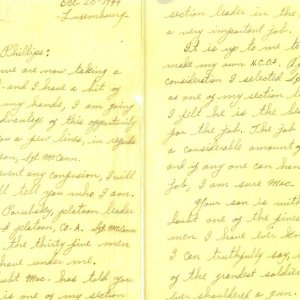 Oct 20 1944
Luxembourg
Phillips:
we are now taking a
and I have a bit of
my hands, I am going
advantage of this opportunity
you a few lines, in regards
son, Sgt. McCann.
event any confusion, I will
tell you who I am.
platoon leader
platoon, Co-A. Sgt McCann
the thirty five men
have under me.
doubt Mac. has told you
is one of my section
section leader in the
a very important job.
It is up to me to
make my own N.C.O's.
consideration I selected
as one of my section
I felt he is the
for the job. The job
a considerable amount
and if any one can
job, I am sure Mac.
Your son is with
doubt one of the fines
men I have ever kno
I can truthfully say,
of the grandest soldier
ever shouldered a gun.